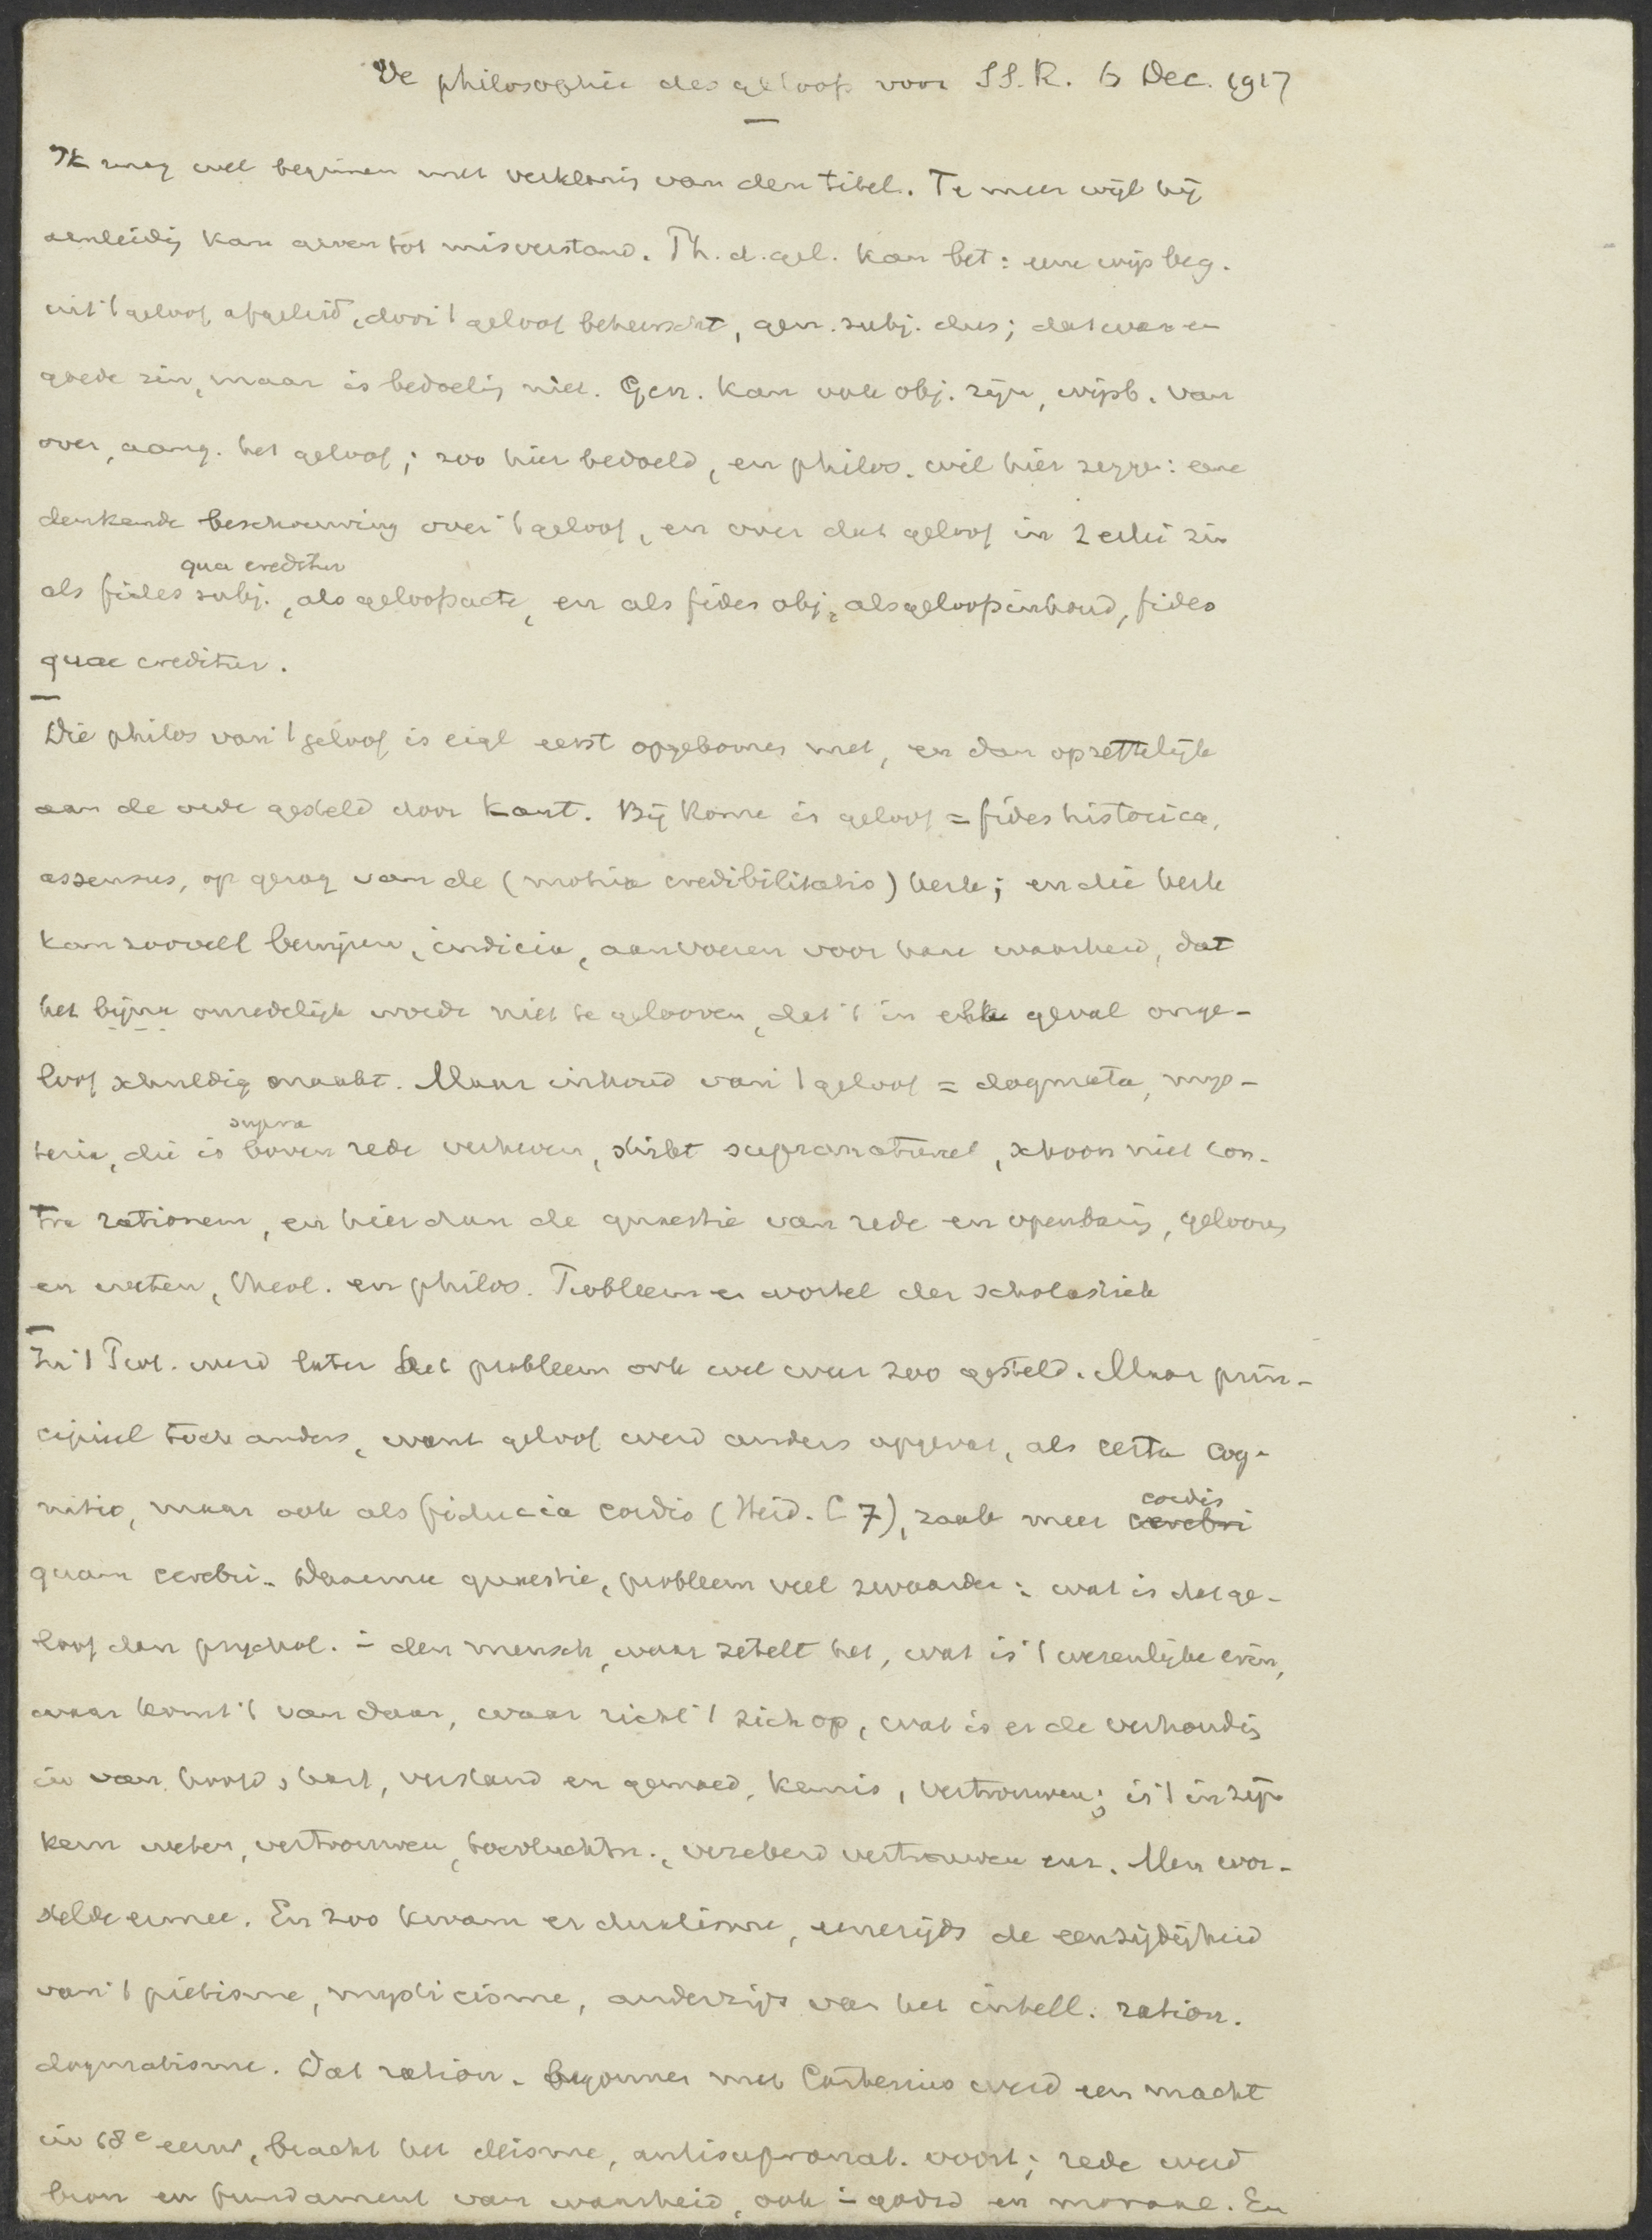 De philosophie des geloofs voor SS.R. 6 Dec. 1917
Ik mag wel beginnen met verklaring van den titel. Te meer wijl hij
aanleidig kan geven tot misverstand. Ph. d. gel. kan bet: eene wijsbeg.
uit 't geloof afgeleid, door 't geloof beheerscht, gen. subj. dus; dat ware een
goede zin, maar is bedoelig niet. Gen. kan ook obj. zijn, wijsb. van
over, aang. het geloof; zoo hier bedoeld, en philos. wil hier zeggen: eene
denkende beschouwing over 't geloof, en over dat geloof in 2 erlei zin
qua creditur
als fides subj., als geloofsacte, en als fides obj., als geloofsinhoud, fides
quae creditur.
Die philos van 't geloof is eigl eerst opgekomen met, en dan opzettelijk
aan de orde gesteld door Kant. Bij Rome is geloof = fides historica,
assensus, op gezag van de (motiva credibilitatis) kerk; en die kerk
kan zooveel bewijzen, indicia, aanvoeren voor hare waarheid, dat
het bijna onredelijk wordt niet te gelooven, dat 't in elk geval onge-
loof schuldig maakt. Maar inhoud van 't geloof = dogmata, mys-
supra
teria, die is boven rede verheven, strikt supranatureel, schoon niet con-
tra rationem, en hier dan de quaestie van rede en openbarig, gelooven
en weten, theol. en philos. Probleem en worstel der scholastiek
In 't Prot. werd later het probleem ook wel weer zoo gesteld. Maar prin-
cipieel toch anders, want geloof werd anders opgevat, als certa cog-
nitio, maar ook als fiducia cordis (Heid. C 7), zaak meer cordis
cerebri
quam cerebri. Daarmee quaestie, probleem veel zwaarder: wat is dat ge-
loof dan psychol. in den mensch, waar zetelt het, wat is 't wezenlijke erin,
waar komt 't van daan, waar richt 't zich op, wat is er de verhoudig
in van hoofd, hart, verstand en gemoed, kennis, vertrouwen; is 't in zijn
kern weten, vertrouwen, toevluchtn., verzekerd vertrouwen enz. Men wor-
stelde ermee. En zoo kwam er dualisme, eenerzijds de eenzijdigheid
van 't piëtisme, mysticisme, anderzijds van het intell. ration.
dogmatisme. Dat ration. begonnen met Cartesius werd een macht
in 18e eeuw, bracht het deisme, antisupranat. voort; rede werd
bron en fundament van waarheid, ook in godsd en moraal. En